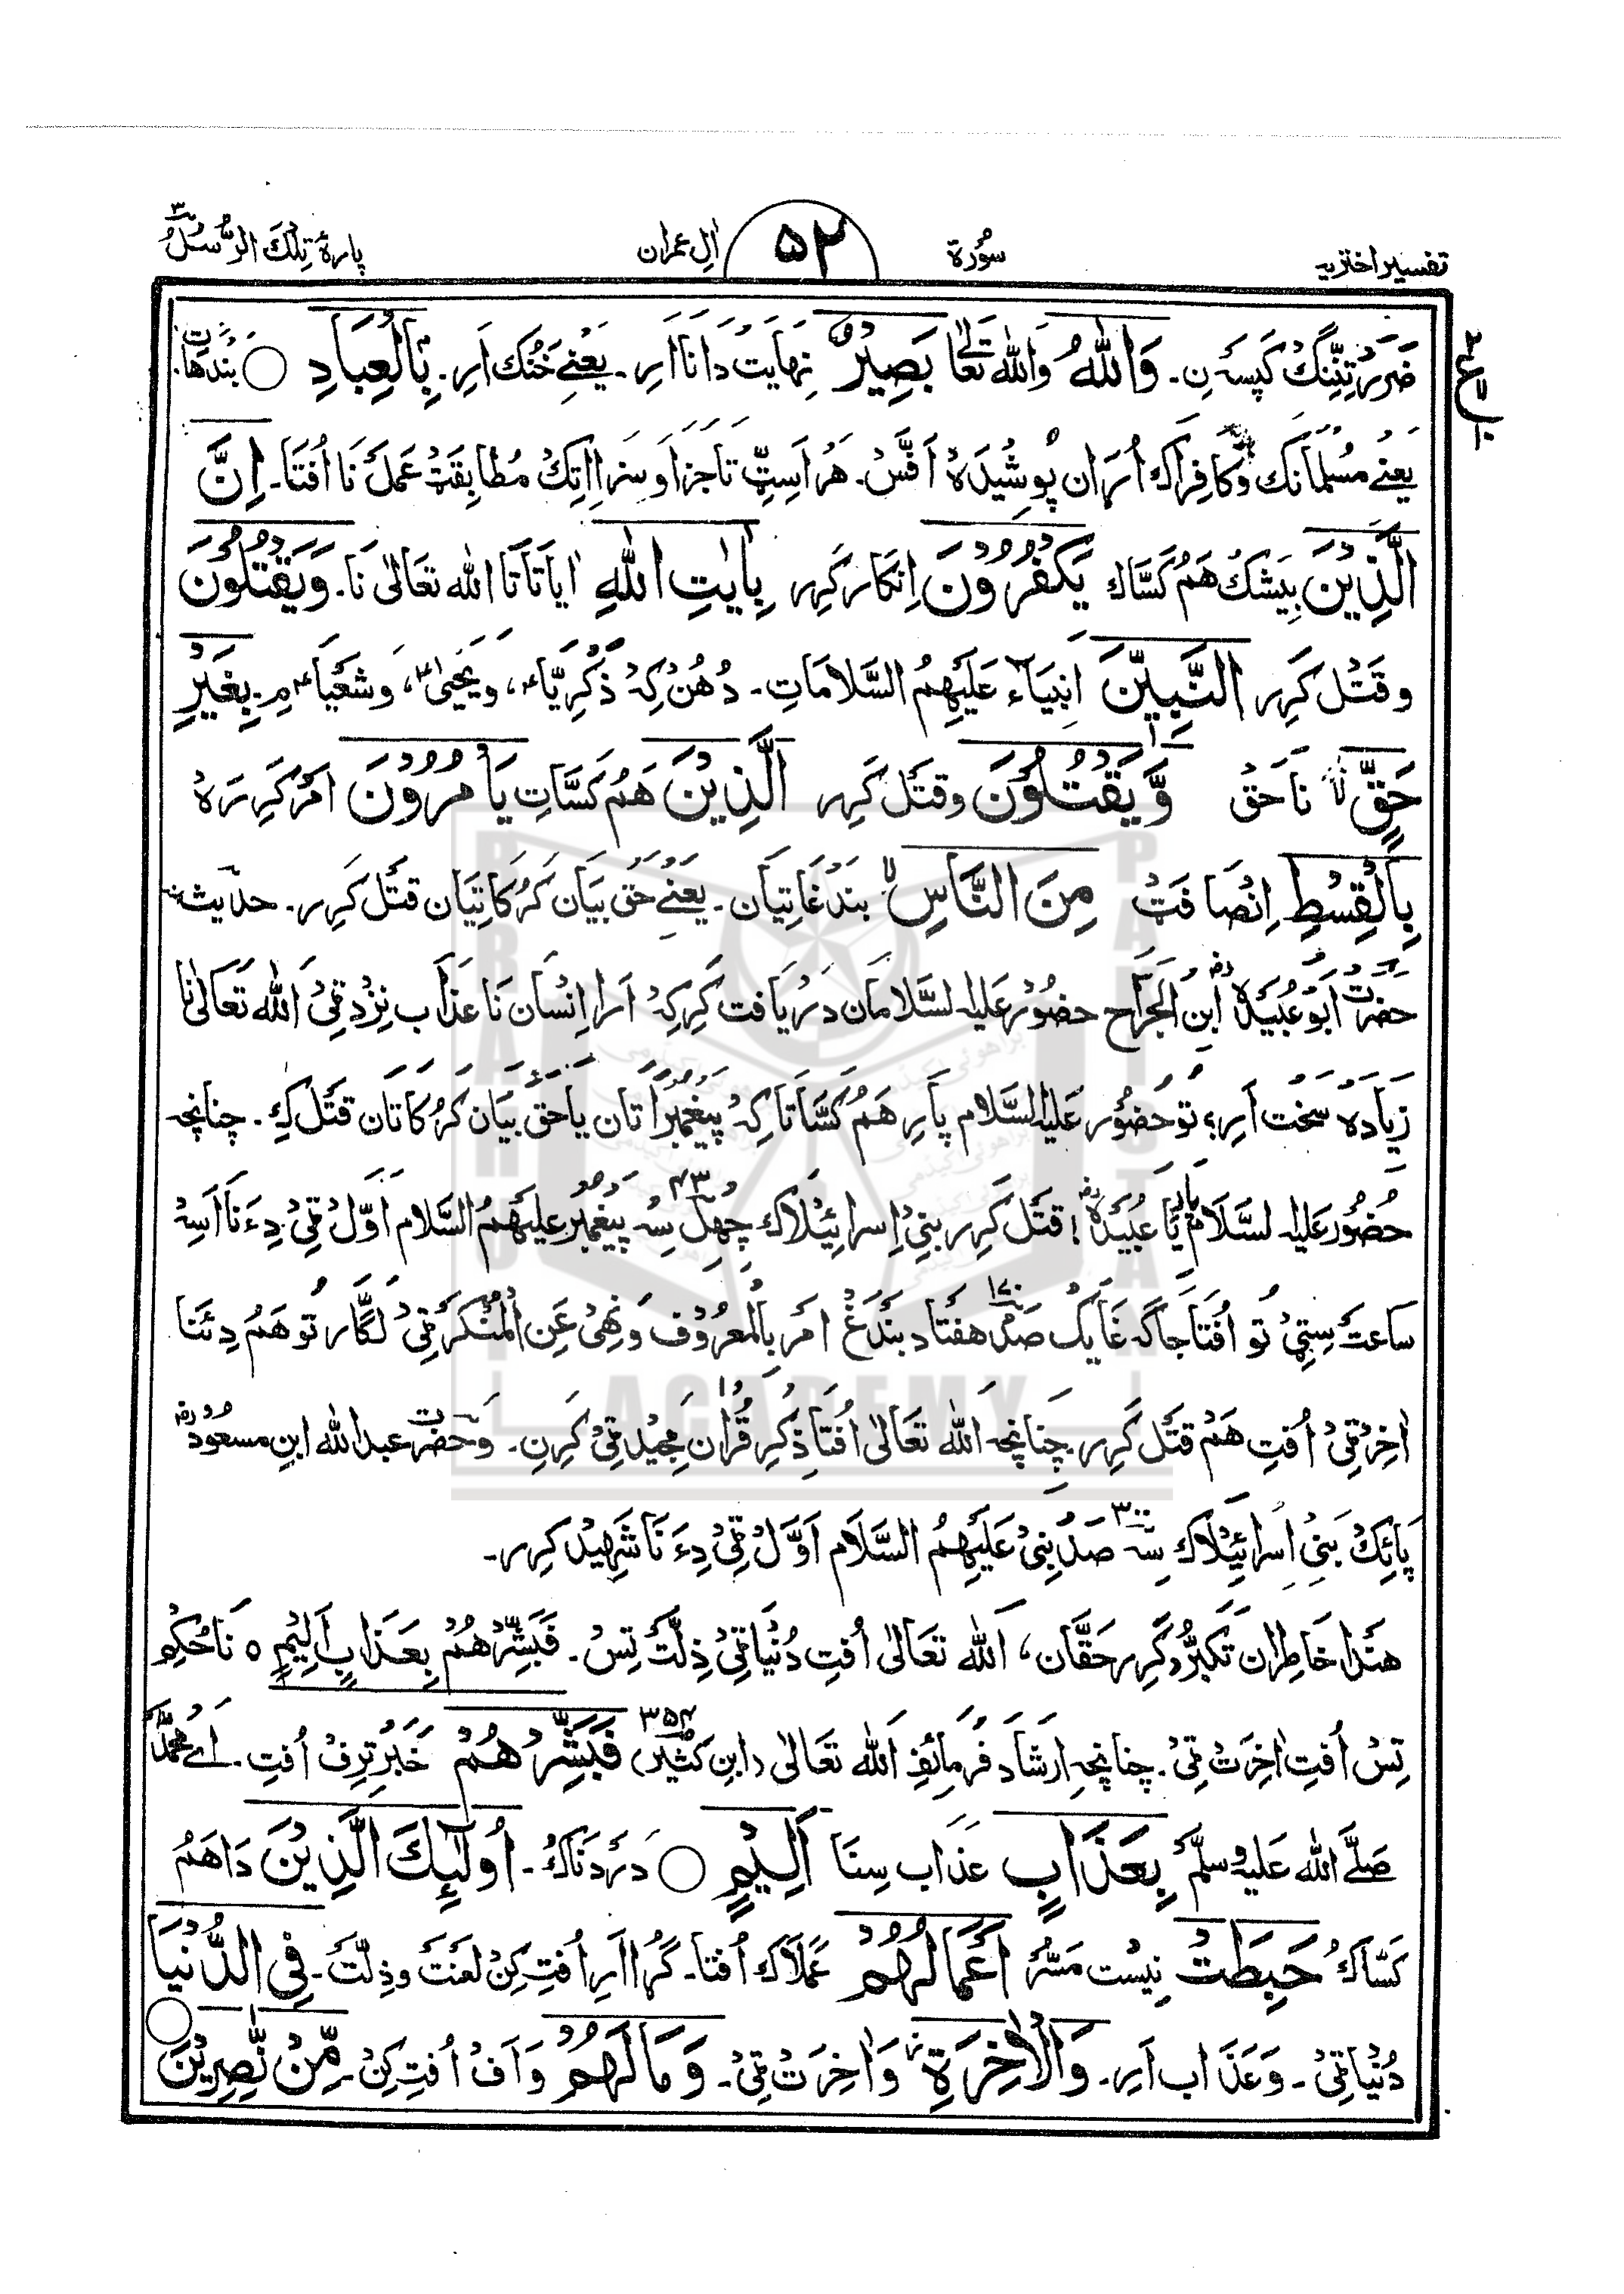 تفسیر اختریہ سُوْرۃ ۵۲ اٰلِ عمران پارۂ تِلْکَ الرُّسُلُ ۳
ضَرَر تِنِّنگ کَپسہ نِ۔ وَاللّٰہُ وَاللّٰہ تعَالٰی بَصِیْرٌ نِہَایَت دَانَا اَرِ۔ یَعْنِے خُنَک اَرِ۔ بِالْعِبَادِ ○ بَندہَاتِ
یَعنے مُسلمانَک وَکَافِرَاک اُرَان پوشیدَہ اَفَّسْ۔ ہَر اَسِٹِّ تَا جزا وَ سَزا اِتِکْ مُطابِقَتْ عَمَلَ نَا اُفتَا۔ اِنَّ
الَّذِیْنَ بیشَک ہَمُ کَسَّاک یَکْفُرُوْنَ اِنکَار کَرِر بِاٰیٰتِ اللّٰہِ اٰیَاتَا تَا اللّٰہ تَعَالٰی نَا۔ وَیَقْتُلُوْنَ
وقَتْل کَرِر النَّبِیّٖنَ اَنبِیَاء عَلَیْہِمُ السَّلَامَاتِ۔ دُہُنْ کِہْ ذَکَرِیَّا، وَیَحْیٰی، وَشَعْیَا مِ۔ بِغَیْرِ
حَقٍّ لا نَا حَقْ وَّیَقْتُلُوْنَ وقَتَل کَرِر الَّذِیْنَ ہَمُ کَسَّاتِ یَاْمُرُوْنَ اَمْر کَرِرَہْ
بِالْقِسْطِ اِنْصَافَتْ مِنَ النَّاسِ لا بَنْدَغَاتِیَان۔ یَعْنِے حَق بَیَان کَرُکَاتِیَان قَتْل کَرِر۔ حدیث
حَضْرَت اَبُوعُبَیْدَہ اِبن الْجَرَّاح حضُوْر عَلَیہِ السَّلَامَان دَریَافت کَرِ کِہْ اَرَا اِنْسَان نَا عَذَاب نِزد ٹِیْ اَللّٰہ تَعَالٰی نَا
زِیَادَہ سَخْت اَرِ؟ تو حَضُوْر عَلَیہِ السَّلَام پَارِ ہَمُ کَسَّا تَا کِہْ پَیْغَمْبَرَاتَان یَا حَقْ بَیَان کَرُکَاتَان قَتَل کِ۔ چنانچہ
حُضُوْر عَلَیہِ السَّلَام پَارِ یَا عُبَیْدَہ! قَتَل کَرِر بَنِیْ اِسْرَائِیْلَاک چہل سِہ ۴۳ پَیْغَمْبر عَلَیْہِمُ السَّلَام اَوَّل ٹِیْ دِءَ نَا اَسِہ
سَاعت سِٹِیْ تو اُفتَا جَاگَہ غَا یَک صَد ہفتاد ۱۷۰ بَنْدَغْ اَمَر بِالْمَعْرُوْف وَنَہِیْ عَنِ الْمُنْکَر ٹِیْ لَگَّار تو ہَمُ دِئنَا
اٰخِر ٹِیْ اُفتِ ہَمُ قَتَل کَرِر۔ چنانچہ اَللّٰہ تَعَالٰی اُفتَا ذِکر قُرْاٰن مَجِیْد ٹِیْ کَرِنِ۔ وَحَضْرَت عبد اللّٰہ ابنِ مسعُوْد
پَائِکْ بَنِیْ اِسرائِیْلَاک سِہ صَد ۳۰۰ نَبِیْ عَلَیْہِمُ السَّلَام اَوَّل ٹِیْ دِءَ نَا شَہِیْد کَرِر۔
ہَنْدَا خَاطِرَان تَکَبُّر کَرِر حَقَّان، اَللّٰہ تَعَالٰی اُفتِ دُنْیَا ٹِیْ ذِلَّتْ تِسْ۔ فَبَشِّرْھُمْ بِعَذَابٍ اَلِیْمٍ ○ نَا حُکِم
تِسْ اُفتِ اٰخِرَتْ ٹِیْ۔ چنانچہ اِرشَاد فَرمَائِفِ اَللّٰہ تَعَالٰی (ابنِ کَثِیر ۳۵۴) فَبَشِّرْھُمْ خَبَر تِرِفْ اُفتِ۔ اَے مُحَمَّد
صَلَّے اللّٰہ عَلَیہِ وَسلّم بِعَذَابٍ عَذَاب سِنَا اَلِیْمٍ ○ دَرْدنَاکْ۔ اُولٰٓئِکَ الَّذِیْنَ دَا ہَمُ
کَسَّاکُ حَبِطَتْ نِیْست مَسُّر اَعْمَالُھُمْ عَمَلَاک اُفتَا۔ گُرا اَرِ اُفتِ کِنْ لَعْنَتْ وذِلَّتْ۔ فِی الدُّنْیَا
دُنْیَا ٹِیْ۔ وَعَذَاب اَرِ۔ وَالْاٰخِرَۃِ وَاٰخِرَتْ ٹِیْ۔ وَمَالَھُمْ وَاَفْ اُفتِ کِنْ۔ مِّنْ نّٰصِرِیْنَ ○